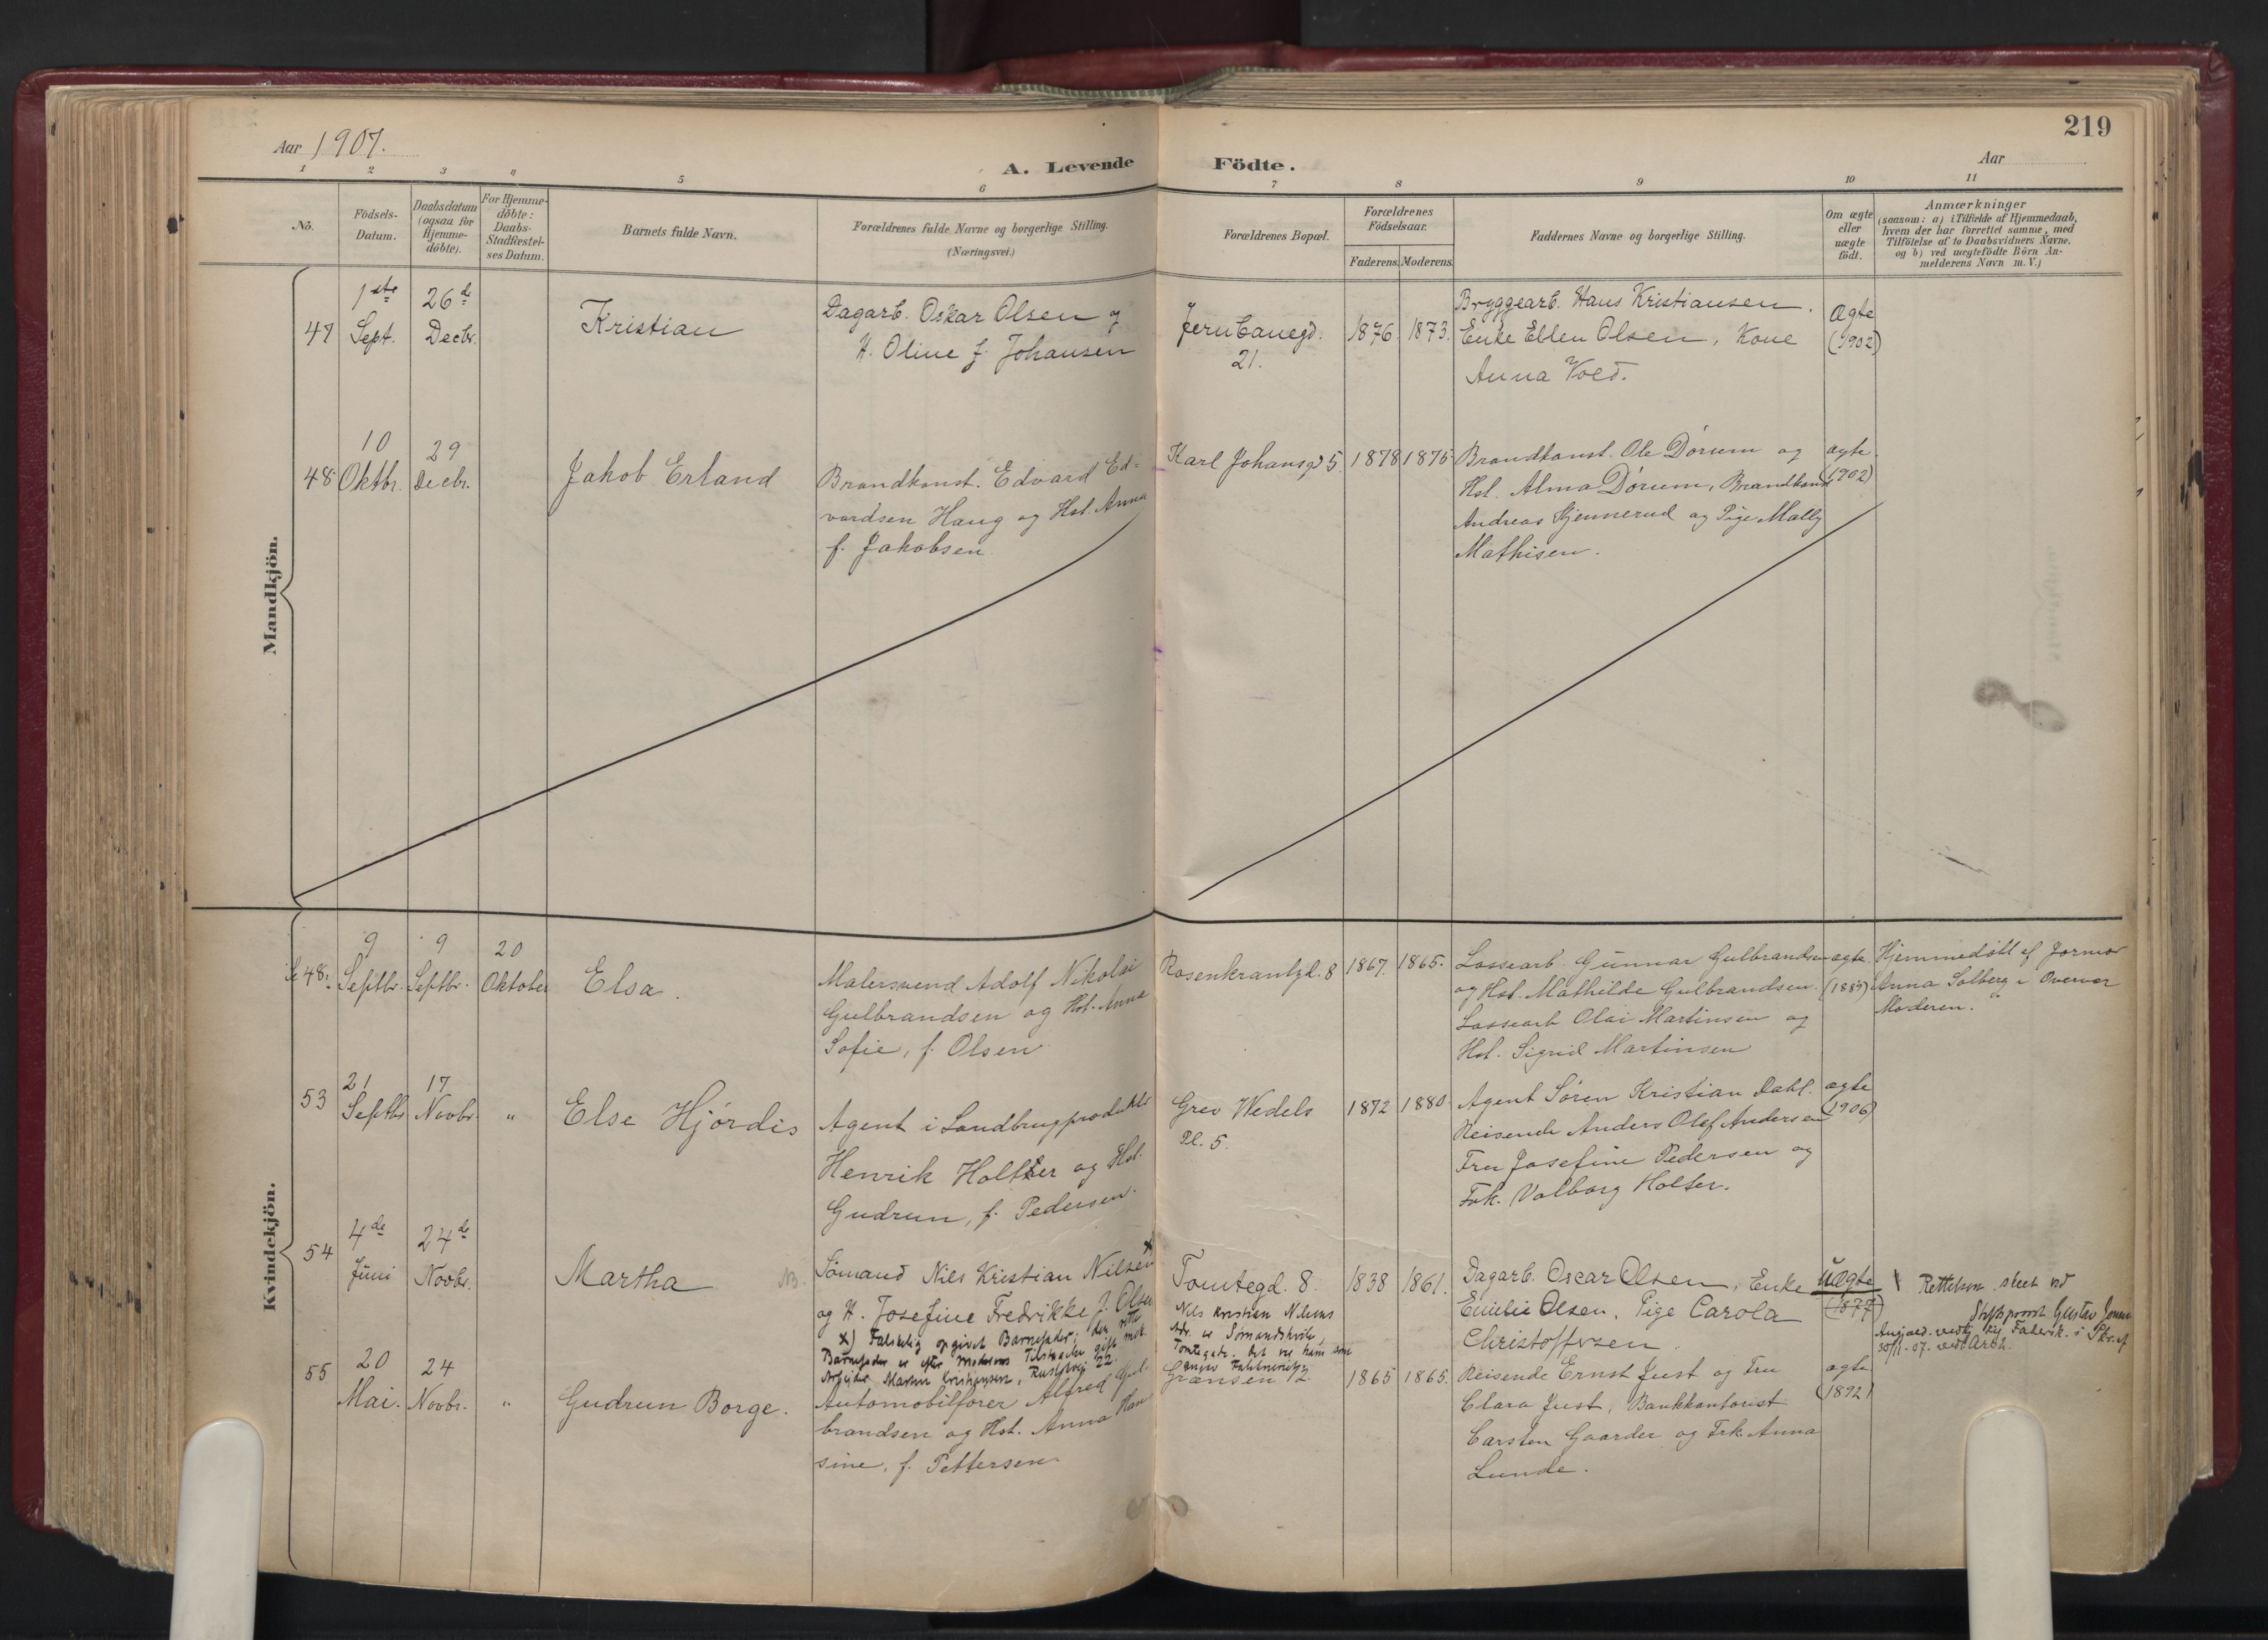 219
Aar 1907.
A. Levende Födte.
Aar
1 2 3 4 5 6 7 8 9 10 11
No.
Födsels-
Datum.
Daabsdatum
(ogsaa for
Hjemme-
döbte).
For Hjemme-
döbte:
Daabs-
Stadfæstel-
ses Datum.
Barnets fulde Navn.
Forældrenes fulde Navne og borgerlige Stilling.
(Næringsvei.)
Forældrenes Bopæl.
Forældrenes
Födselsaar.
Faderens. Moderens.
Faddernes Navne og borgerlige Stilling.
Om ægte
eller
uægte
födt.
Anmærkninger
(saasom: a) i Tilfælde af Hjemmedaab,
hvem der har forrettet samme, med
Tilföielse af to Daabsvidners Navne.
og b) ved uægtefödte Börn An-
melderens Navn m. V.)
Mandkjön.
47
1ste
Sept.
26de
Decbr.
Kristian
Dagarb. Oskar Olsen og
H. Oline f. Johansen
Jernbanegd.
21.
1876. 1873.
Bryggearb. Hans Kristiansen.
Enke Ellen Olsen, Kone
Anna Vold.
Ægte
(1902)
48
10
Oktbr.
29
Decbr.
Jakob Erland
Brandkonst. Edvard Ed-
vardsen Haug og Hst. Anna
f. Jakobsen
Karl Johansgd 5.
1878 1875
Brandkonst. Ole Dørum og
Hst. Alma Dørum, Brandkonst
Andreas Hjennerud og Pige Mally
Mathisen.
ægte
(1902)
Kvindekjön.
48.
9
Septbr.
9
Septbr.
20
Oktober
Elsa.
Malersvend Adolf Nikolai
Gulbrandsen og Hst. Anna
Sofie, f. Olsen
Rosenkrantzgd. 8
1867. 1865.
Lossearb. Gunnar Gulbrandsen
og Hst. Mathilde Gulbrandsen.
Lossearb Olai Martinsen og
Hst. Sigrid Martinsen
ægte.
Hjemmedøbt af Jormor
Anna Solberg i Overvær
Moderen.
53
21
Septbr
17
Novbr.
"
Else Hjørdis
Agent i Landbrugsprodukter
Henrik Holter og Hst.
Gudrun, f. Pedersen.
Grev Wedels
Pl. 5.
1872 1880
Agent Søren Kristian Dahl.
Reisende Anders Olaf Andersen
Fru Josefine Pedersen og
Frk. Valborg Holter.
ægte
(1906)
54
4de
Juni
24de
Novbr.
Martha
NB.
Sømand Nils Kristian Nilsen x
og H. Josefine Fredrikke f. Olsen
x) Falskelig opgivet Barnefader; den rette
Barnefader er efter Moderens Tilstaaelse gift
Arbeider Martin Kristiansen, 22.
Tomtegd. 8.
Nils Kristian Nilsens
Adr. er Sømandshvile,
Tomtegade. Det var ham som
1838 1861.
Dagarb. Oscar Olsen, Enke
Emilie Olsen, Pige Carola
Christoffersen
Uægte
(1877)
Rettelsen skeet ved
Stiftsprovst Gustav Jensen
55
20
Mai.
24
Novbr.
"
Gudrun Borge.
Automobilfører Alfred Gul-
brandsen og Hst. Anna Han
sine, f. Pettersen
Grænsen 12.
1865 1865.
Reisende Ernst Just og Fru
Clara Just, Bankkontorist
Carsten Gaarder og Frk. Anna
Lunde.
ægte
(1892)